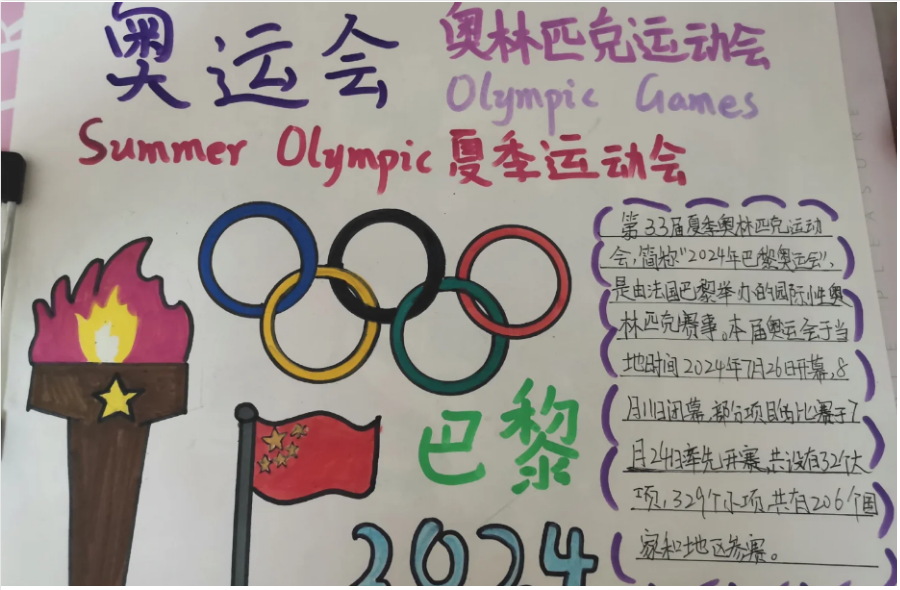 奥运会
奥林匹克运动会
Olympic Games
Summer Olympic 夏季运动会
第33届夏季奥林匹克运动
会,简称"2024年巴黎奥运会",
是由法国巴黎举办的国际性奥
林匹克赛事。本届奥运会于当
地时间2024年7月26日开幕,8
月11日闭幕,部分项目的比赛于7
月24日率先开赛,共设有32个大
项,329个小项,共有206个国
家和地区参赛。
巴黎
2024